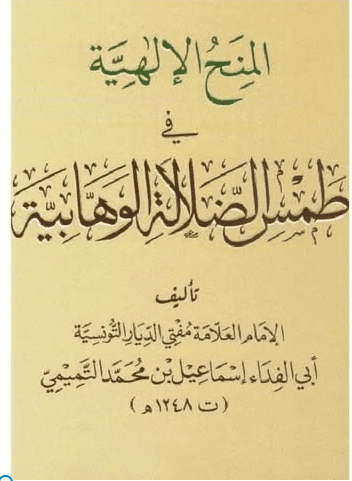 المِنَحُ الإِلٰهِيَّة
في
طَمْسِ الضَّلَالَةِ الوَهَّابِيَّة
تأليف
الإمَام العَلّامَة مُفتي الدِيَار التُّونسِيَّة
أبي الفِدَاء إسْمَاعيْل بْن مُحَمَّد التَّمِيمِيّ
( ت ١٢٤٨ هـ )